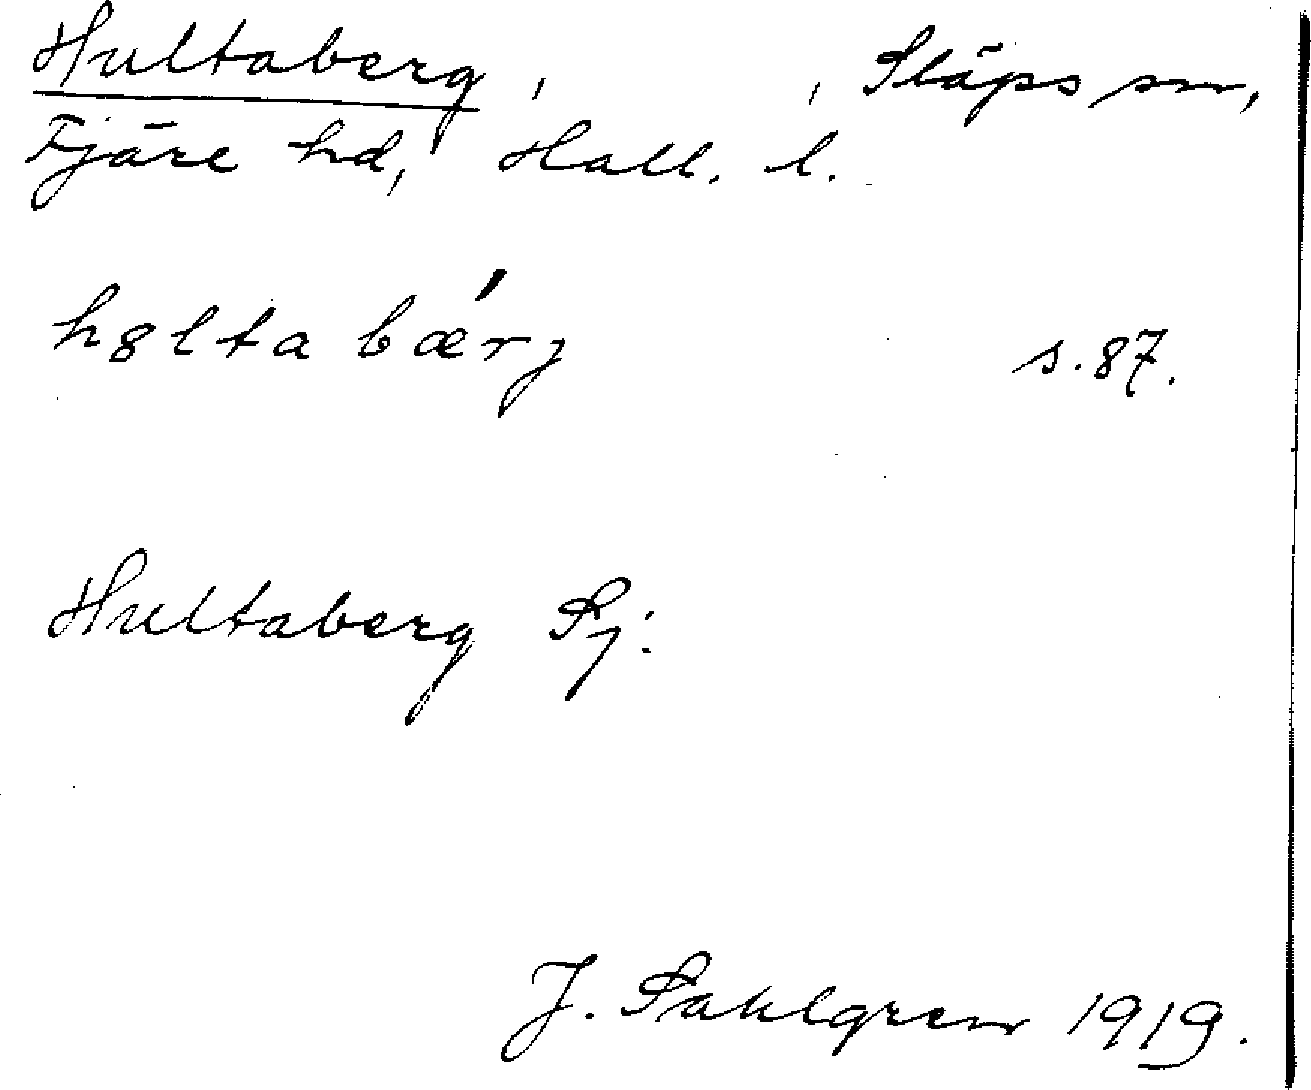 Hultaberg, , Släps sn,
Fjäre hd, Hall. l.
h8ltabǽrj s.87.
Hultaberg Sj:
J. Sahlgren 1919.